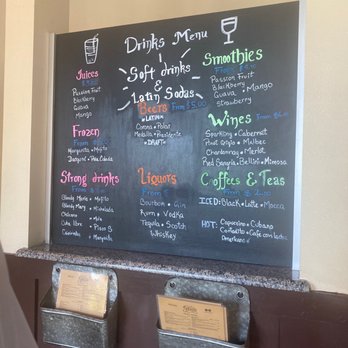 Drinks Menu
Soft drinks
&
Latin Sodas
Juices
Passion Fruit
Blackberry
Guava
Mango
Frozen
From
Margarita • Mojito
Daiquiri • Pina Colada
Strong drinks
From
Bloody Marie • Mojito
Bloody Mary • Michelada
Cuba libre
• Margarita
Beers From $5.00
•LATIN•
Corona • Polar
Medalla • Presidente
•DRAFT•
Liquors
From
Bourbon • Gin
Rum • Vodka
Tequila • Scotch
Whiskey
Smoothies
From
Passion Fruit
Blackberry
Guava • Mango
Strawberry
Wines
From
Sparkling • Cabernet
Pinot Grigio • Malbec
Chardonnay • Merlot
Red Sangria • Bellini • Mimosa
Coffees & Teas
From
ICED: Black • Latte • Mocca
HOT: Capuccino • Cubano
Cortadito • Café con leche
Americano